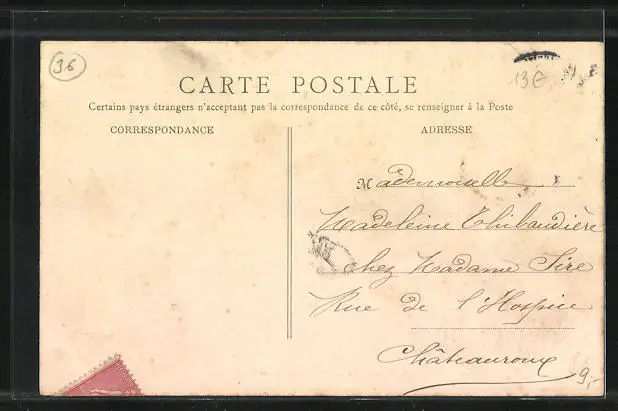 36
13€
CARTE POSTALE
Certains pays étrangers n'acceptant pas la correspondance de ce côté, se renseigner à la Poste
CORRESPONDANCE
ADRESSE
Mademoiselle
Madeleine Thibaudière
chez Madame Sire
Rue de l'Hospice
Châteauroux
9,-